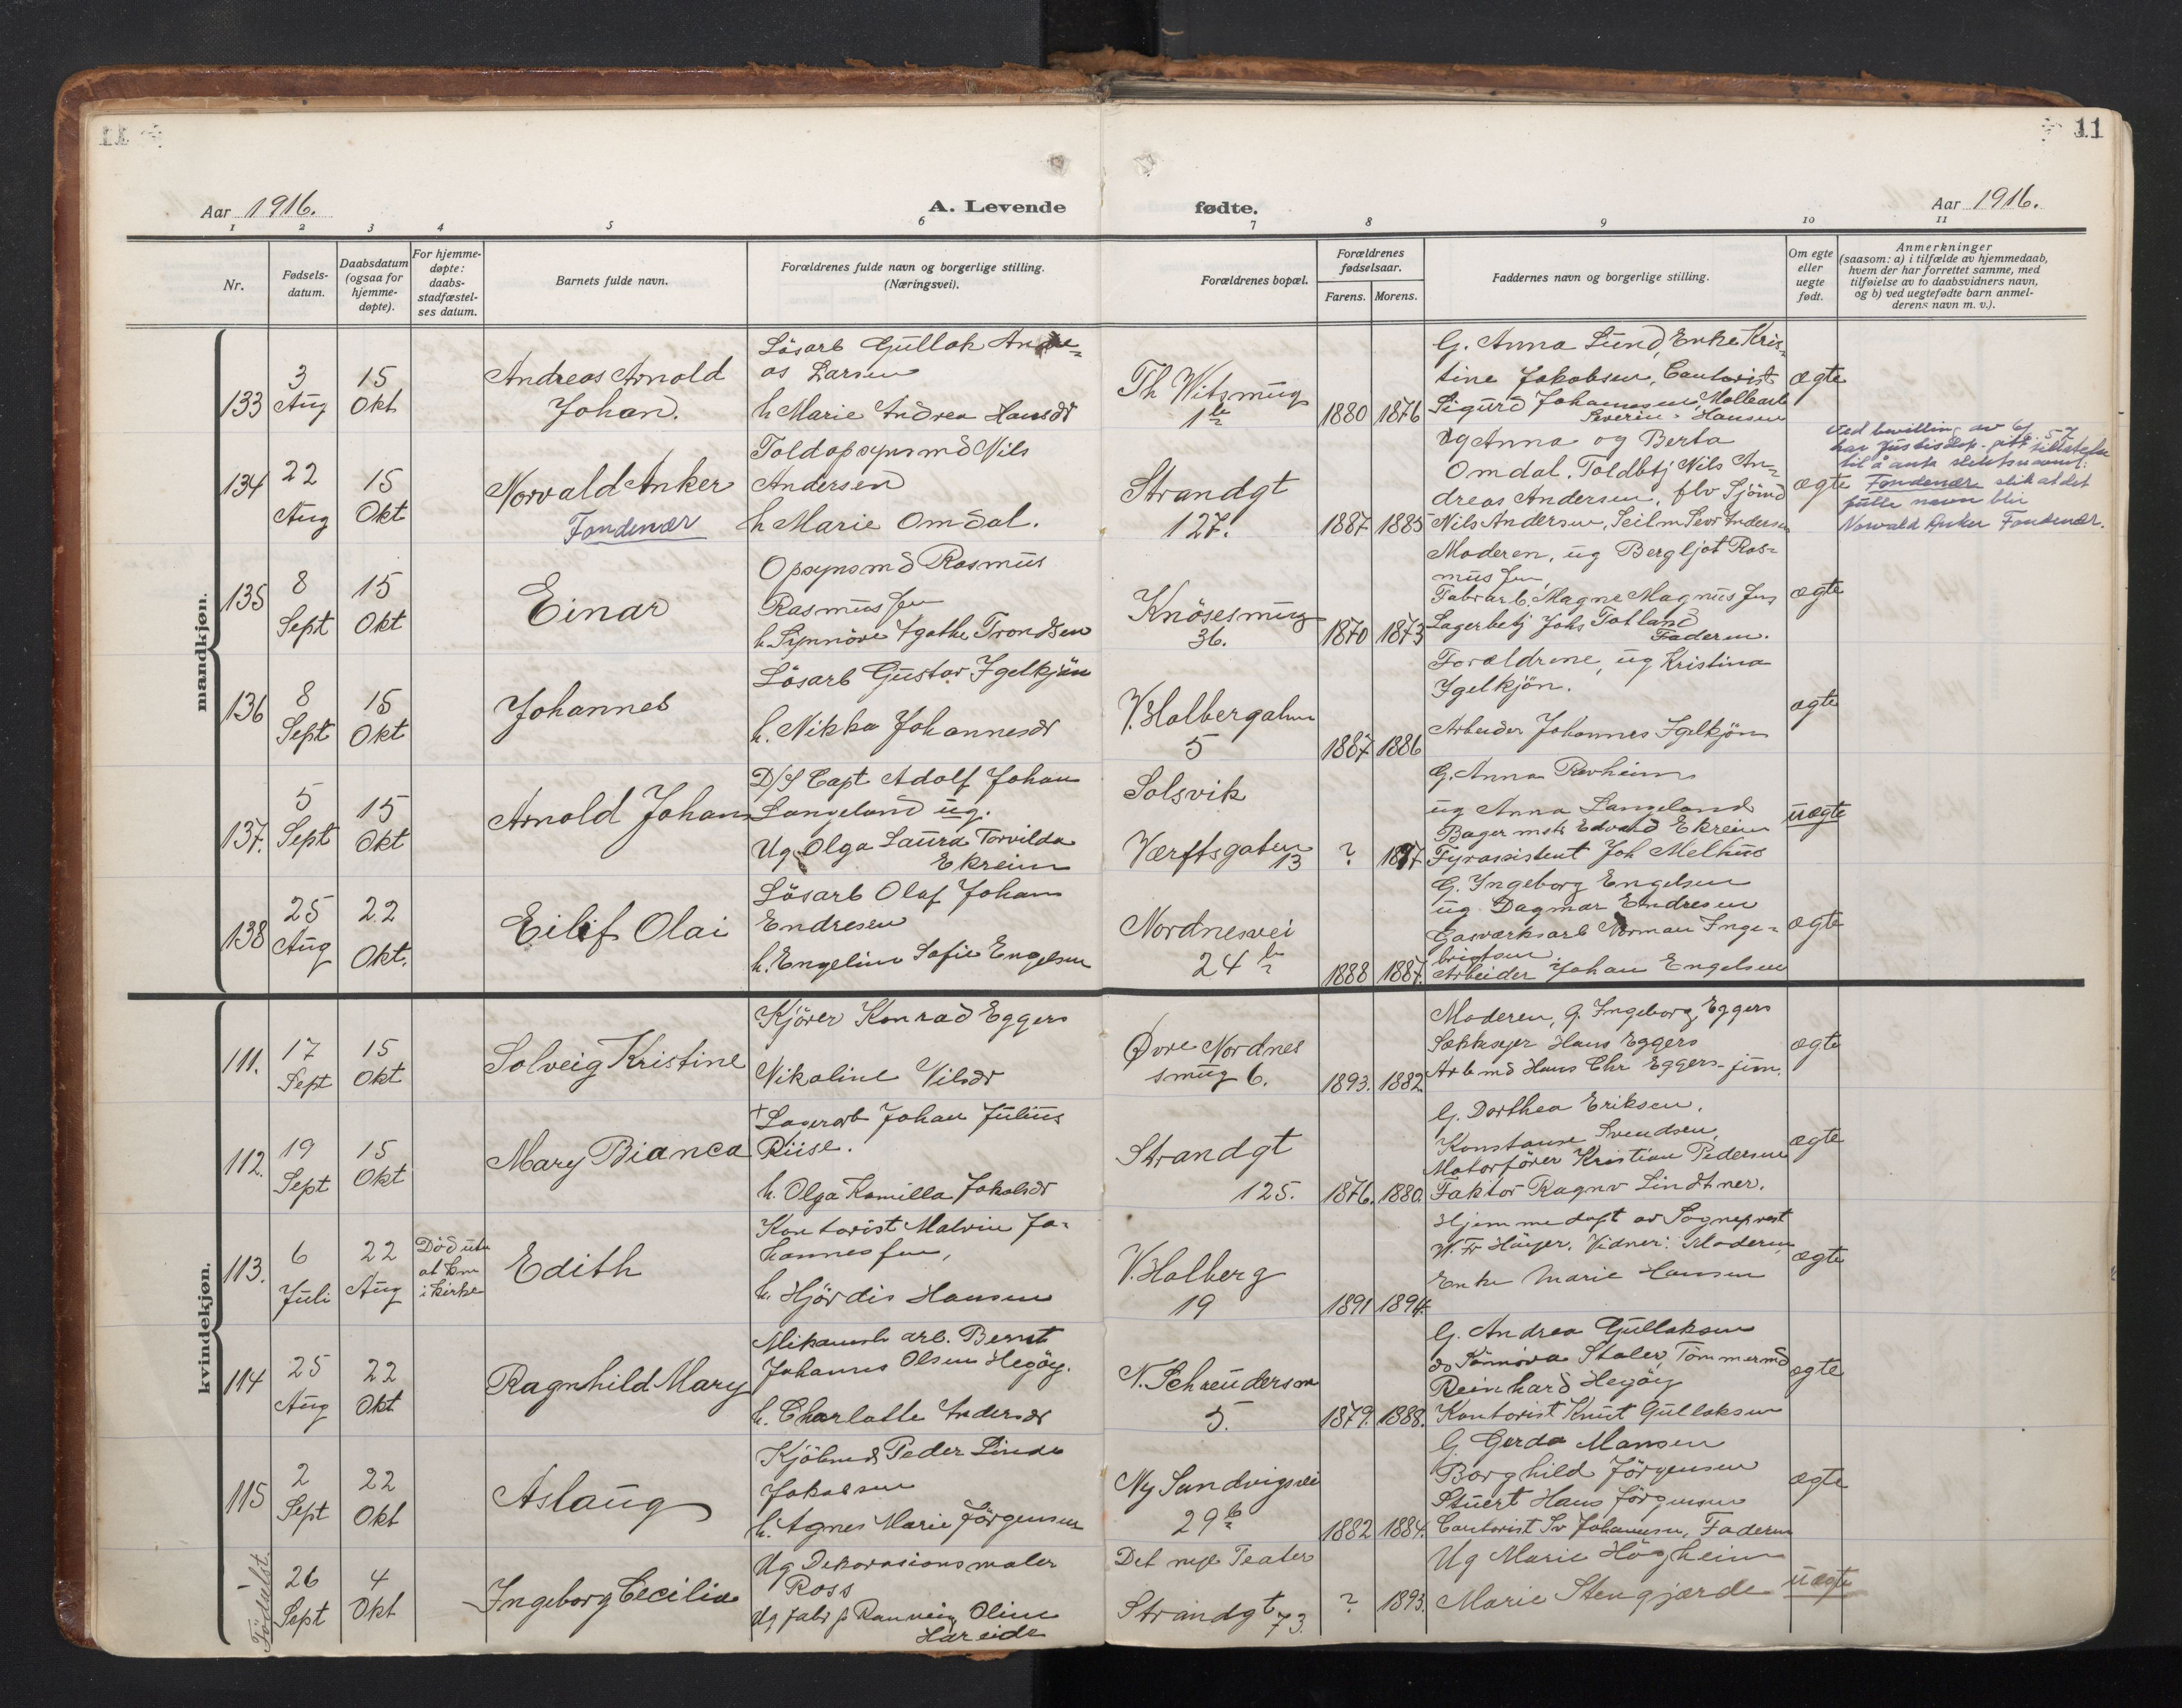 11 11
Aar 1916. A. Levende fødte. Aar 1916.
1 2 3 4 5 6 7 8 9 10 11
Nr.
Fødsels-
datum.
Daabsdatum
(ogsaa for
hjemme-
døpte).
For hjemme-
døpte:
daabs-
stadfæstel-
ses datum.
Barnets fulde navn.
Forældrenes fulde navn og borgerlige stilling.
(Næringsvei).
Forældrenes bopæl.
Forældrenes
fødselsaar.
Farens. Morens.
Faddernes navn og borgerlige stilling.
Om egte
eller
uegte
født.
Anmerkninger
(saasom: a) i tilfælde av hjemmedaab,
hvem der har forrettet samme, med
tilføielse av to daabsvidners navn,
og b) ved uegtefødte barn anmel-
derens navn m. v.).
mandkjøn.
133
3
Aug
15
Okt
Andreas Arnold
Johan.
Lösarb Gullak Andre-
as Larsen
h Marie Andrea Hansdr
Th Witsmug
1 b
1880 1876
G. Anna Lund, Enke Kris-
tine Jakobsen, Contorist
Sigurd Johannesen, Malearb
Severin Hansen
ægte
134
22
Aug
15
Okt
Norvald Anker
Fondenær
Toldopsynsmd Nils
Andersen
h Marie Omdal.
Strandgt
127.
1887 1885
Ug Anna og Berta
Omdal. Toldbtj Nils An-
dreas Andersen, flv Sjömd
Nils Andersen, Seilm Sevr Andersen
ægte
Ved bevilling av 6/ 57
har Justisdep. gitt tillatelse
til å anta slektsnavnet:
Fondenær slik at det
fulle navn blir
Norvald Anker Fondenær.
135
8
Sept
15
Okt
Einar
Opsynsmd Rasmus
Rasmussen
h. Synnöve Agathe Trondsen
Knösesmug
36.
1870 1873
Moderen, ug Bergljot Ras-
mussen,
Fabrarb. Magne Magnussen
Lagerbetj Johs Totland
Faderen.
ægte
136
8
Sept
15
Okt
Johannes
Lösarb Gustav Igelkjön
h. Nikka Johannesdr
V. Holbergalm
5
1887 1886
Forældrene, ug Kristina
Igelkjön.
Arbeider Johannes Igelkjön
ægte
137.
5
Sept
15
Okt
Arnold Johan
D/S Capt Adolf Johan
Langeland ug.
Ug Olga Laura Torvilda
Ekreim
Solsvik
Værftsgaten
13
? 1897
G. Anna Revheim
ug Anna Langeland
Bager mstr Edvard Ekreim
Fyrassistent Joh Melhus
uægte
138
25
Aug
22
Okt.
Eilif Olai
Lösarb Olaf Johan
Endresen
h. Engeline Sofie Engelsen
Nordnesvei
24 b
1888 1887.
G. Ingeborg Engelsen
ug. Dagmar Endresen
Gasværksarb Norman Inge-
brigtsen.
Arbeider Johan Engelsen
ægte
kvindekjøn.
111.
17
Sept
15
Okt
Solveig Kristine
Kjörer Konrad Eggers
Nikoline Nilsdr
Øvre Nordnes
smug 6.
1893. 1882
Moderen, G. Ingeborg Eggers
Sækkesyer Hans Eggers
Arbmd Hans Chr Eggers jun.
ægte
112.
19
Sept
15
Okt
Mary Bianca
+ Lagerarb Johan Julius
Riise.
h. Olga Kamilla Jakobsdr
Strandgt
125.
1876. 1880.
G. Dorthea Eriksen.
Konstanse Svendsen,
Motorförer Kristian Pedersen
Faktor Ragnv Lindtner.
ægte
113.
6
Juli
22
Aug
Död uten
at km
i kirke
Edith
Kontorist Malvin Jo-
hannessen,
h. Hjördis Hansen
V. Holberg
19
1891 1894.
Hjemmedøpt av Sogneprest
W. Fr Höyer. Vidner: Moderen,
Enke Marie Hansen
ægte
114
25
Aug
22
Okt
Ragnhild Mary
Mikanisk arb. Bernt
Johannes Olsen Hegöy.
h. Charlotte Andersdr
N. Schreudersm
5.
1879. 1888.
G. Andrea Gullaksen
do Sönnöva Staler, Tömmermd
Reinhard Hegöy
Kontorist Knut Gullaksen
ægte
115
2
Sept
22
Okt
Aslaug
Kjöbmd Peder Linde
Jakobsen
h. Agnes Marie Jörgensen
Ny Sandvigsvei
29 b
1882 1884.
G Gerda Mansen
Borghild Jörgensen
Stuert Hans Jörgensen
Contorist Sv Johannesen, Faderen
ægte
Födselsst.
-
26
Sept
4
Okt
Ingeborg Cecilie
Ug Dekorasionsmaler
Ross
Ug fabr p Rannveig Oline
Hareide
Det nye Teater
Strandgt
73.
? 1893.
Ug Marie Högheim
Marie Stengjærde
uægte